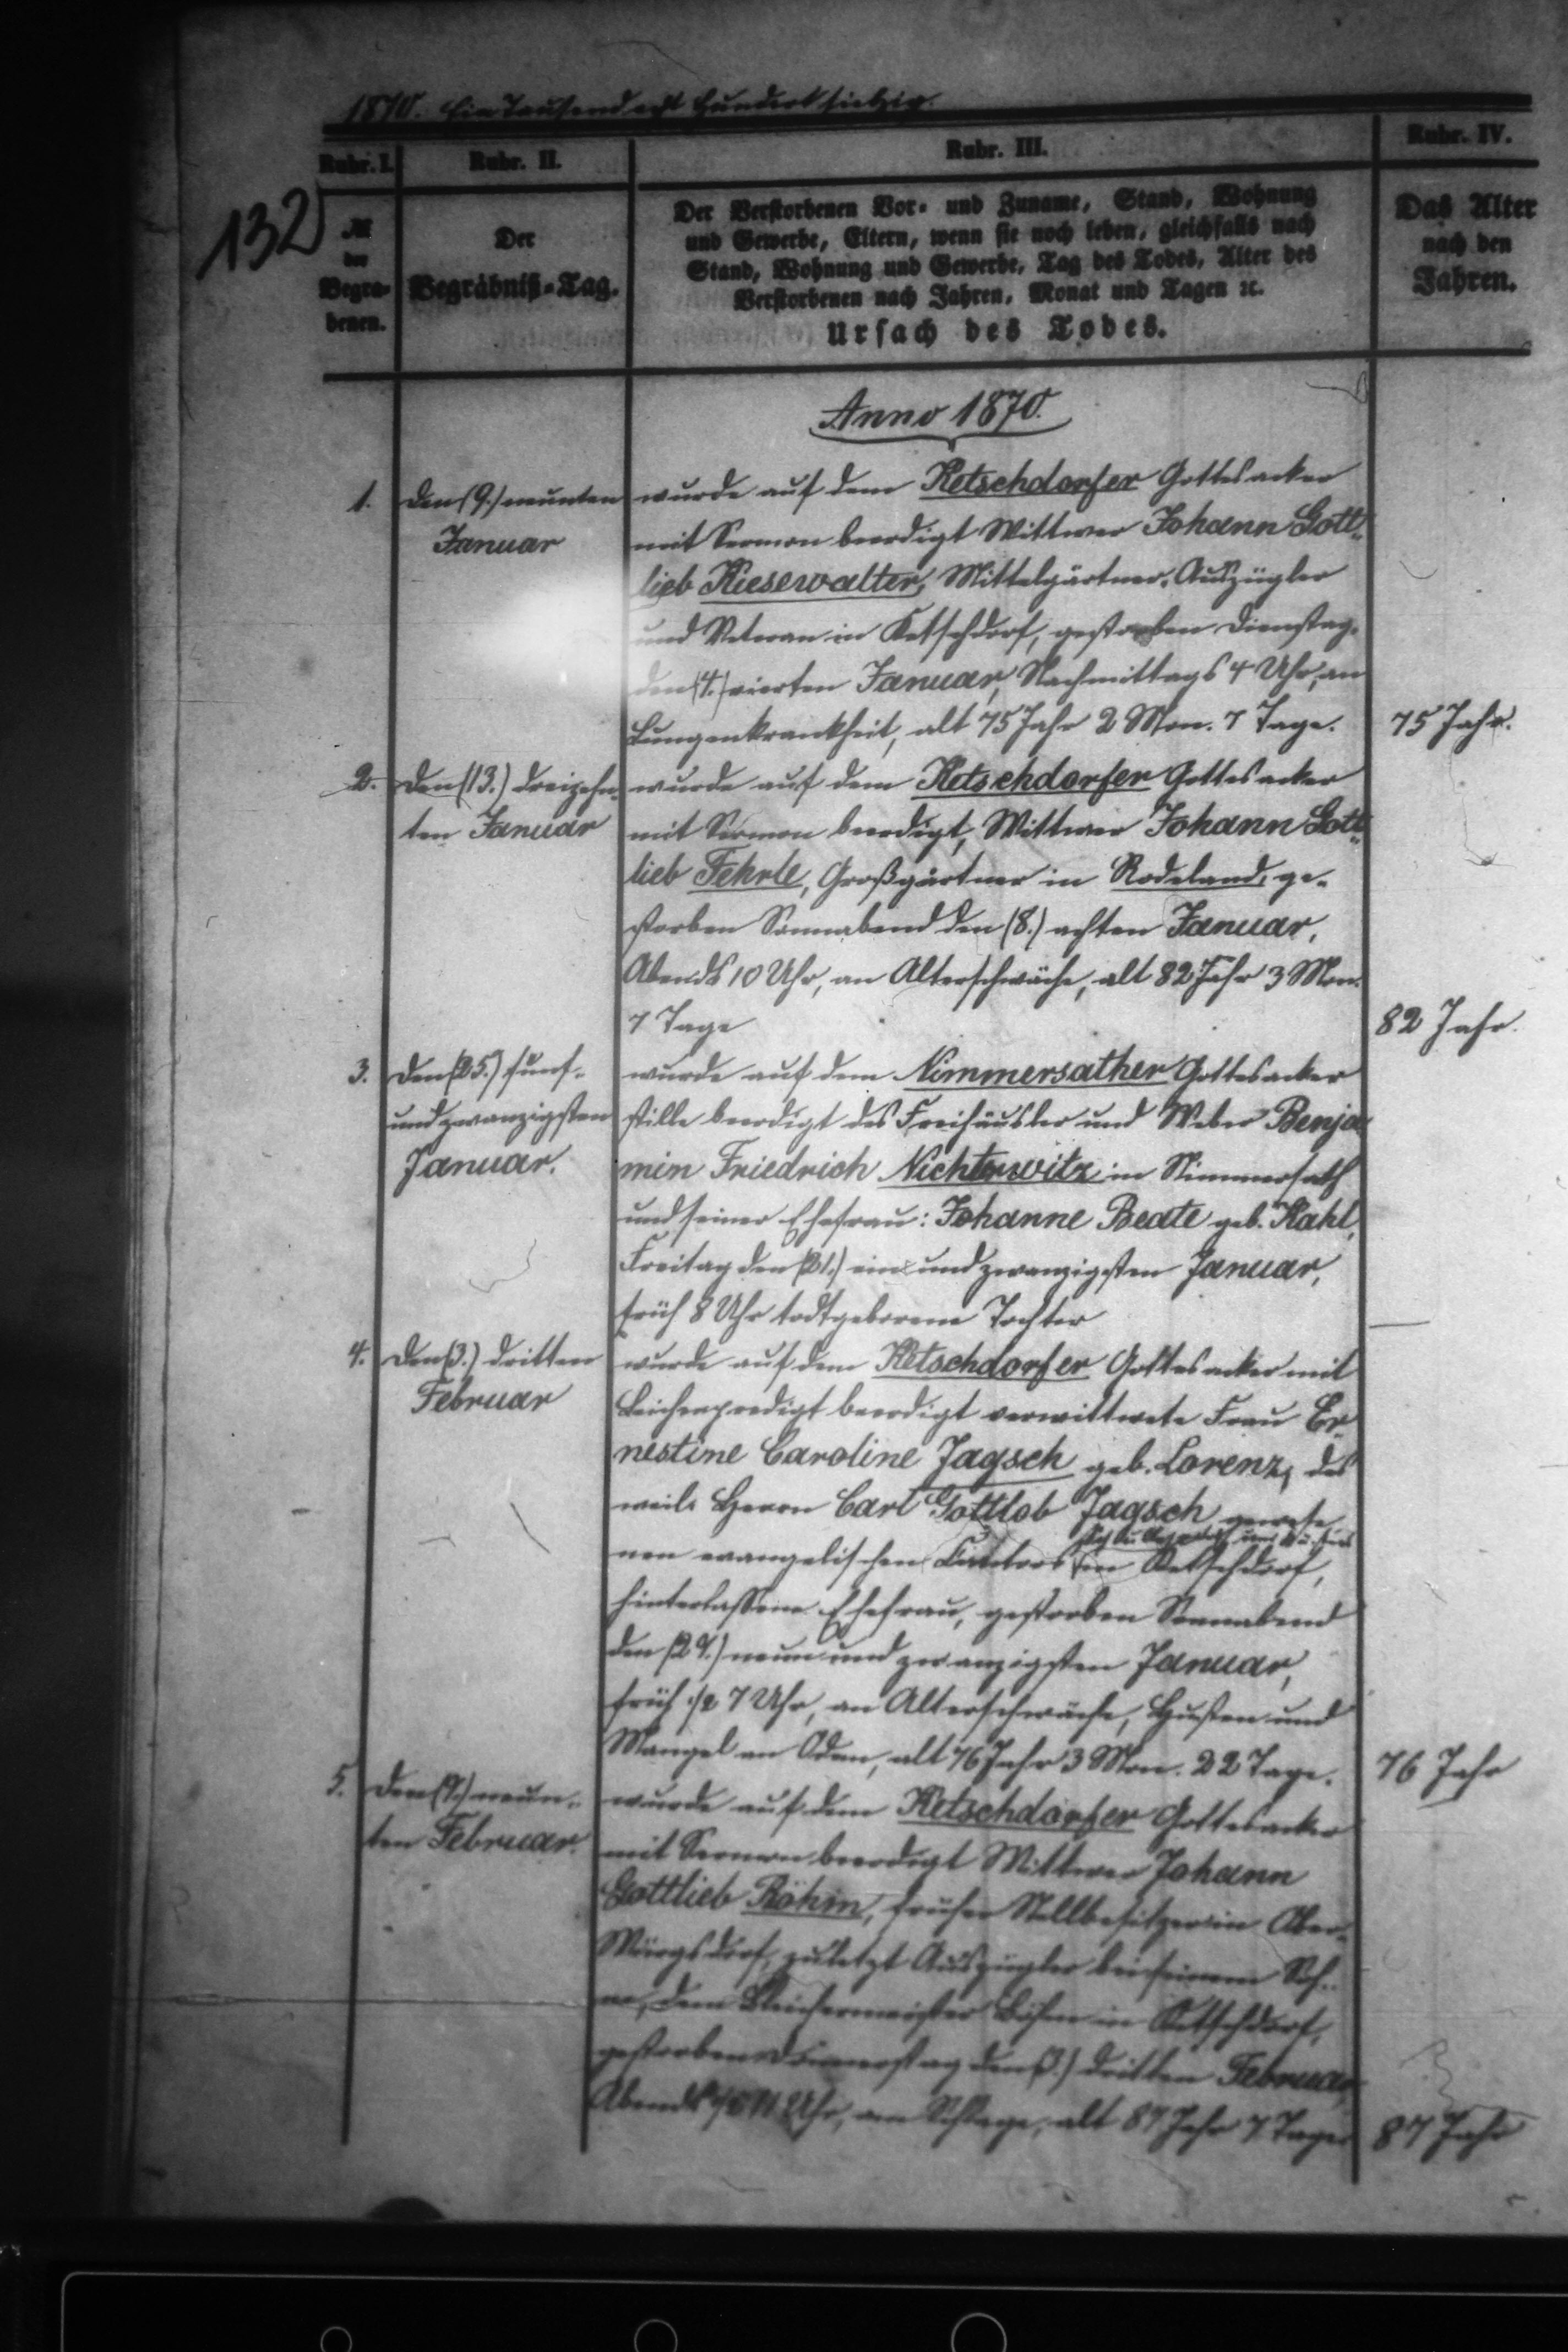 1870. Ein Tausend acht Hundert siebzig.
Rubr. I. Rubr. II. Rubr. III. Rubr. IV.
132
№ der Begrabenen.
Der Begräbniß-Tag.
Der Verstorbenen Vor- und Zuname, Stand, Wohnung
und Gewerbe, Eltern, wenn sie noch leben, gleichfalls nach
Stand, Wohnung und Gewerbe, Tag des Todes, Alter des
Verstorbenen nach Jahren, Monat und Tagen ꝛc.
Ursach des Todes.
Das Alter
nach den
Jahren.
Anno 1870.
1. den (9.) neunten
Januar
wurde auf dem Ketschdorfer Gottesacker
mit Sermon beerdigt Wittwer Johann Gott-
lieb Kiesewalter, Mittelgärtner, Auszügler
und Veteran in Ketschdorf, gestorben Dienstag,
den (4.) vierten Januar, Nachmittags 4 Uhr, an
Lungenkrankheit, alt 75 Jahr 2 Mon. 7 Tage.
75 Jahr.
2. den (13.) dreizehn-
ten Januar
wurde auf dem Ketschdorfer Gottesacker
mit Sermon beerdigt, Wittwer Johann Gott-
lieb Fehrle, Großgärtner in Rodeland, ge-
storben Sonnabend den (8.) achten Januar,
Abends 10 Uhr, an Alterschwäche, alt 82 Jahr 3 Mon.
7 Tage
82 Jahr.
3. den (25.) fünf-
und zwanzigsten
Januar.
wurde auf dem Nimmersather Gottesacker
stille beerdigt des Freihäusler und Weber Benja-
min Friedrich Nichterwitz in Nimmersath
und seiner Ehefrau: Johanne Beate geb. Kahl,
Freitag den (21.) ein und zwanzigsten Januar,
früh 8 Uhr todtgeborene Tochter
4. den (3.) dritten
Februar
wurde auf dem Ketschdorfer Gottesacker mit
Leichenpredigt beerdigt verwittwete Frau Er-
nestine Caroline Jagsch geb. Lorenz, des
weil. Herrn Carl Gottlob Jagsch gewese-
nen evangelischen Cantors in Ketschdorf,
hinterlassene Ehefrau, gestorben Sonnabend
den (29.) neun und zwanzigsten Januar,
früh 1/2 7 Uhr, an Alterschwäche, Husten und
Mangel an Odem, alt 76 Jahr 3 Mon. 22 Tage.
76 Jahr
5. den (9.) neun-
ten Februar.
wurde auf dem Ketschdorfer Gottesacker
mit Sermon beerdigt Wittwer Johann
Gottlieb Böhm, früher Stellbesitzer in Ober-
Würgsdorf, zuletzt Auszügler bei seinem Soh-
ne, dem Bleichermeister Böhm in Ketschdorf,
gestorben Donnerstag den (3.) dritten Februar,
Abends Uhr, am Schlage, alt 87 Jahr 7 Tage
87 Jahr